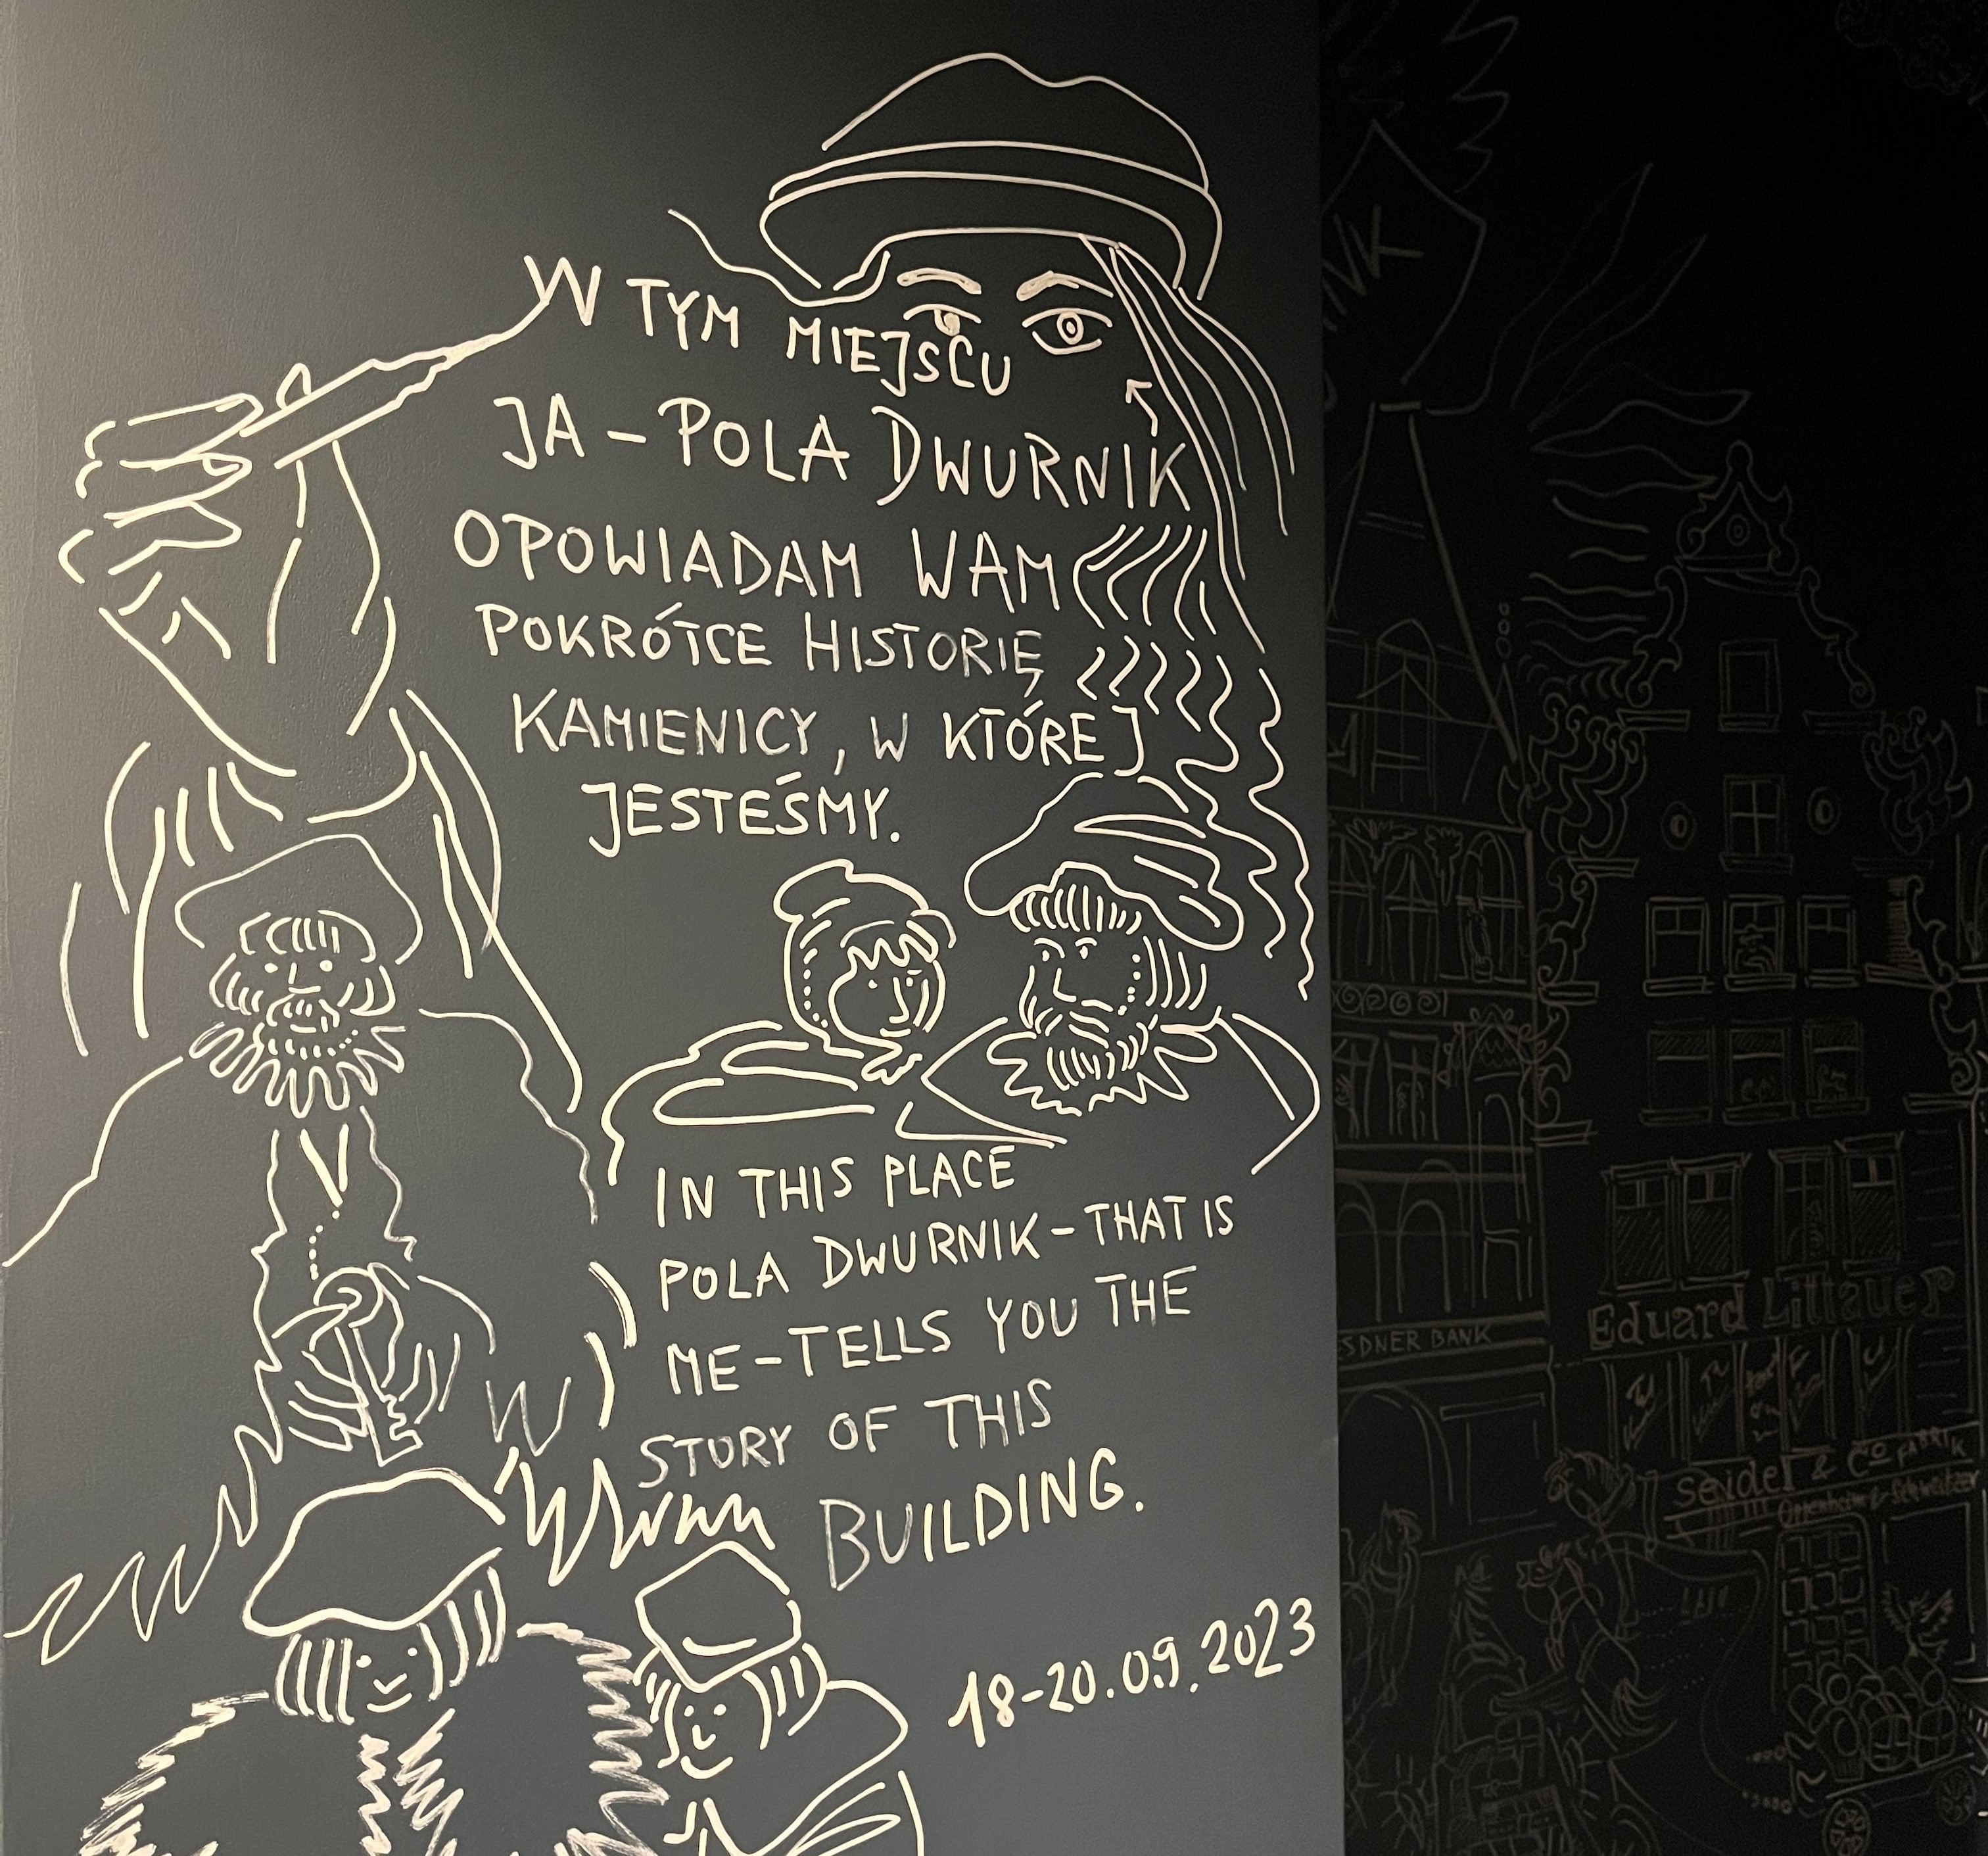 W TYM MIEJSCU
JA – POLA DWURNIK
OPOWIADAM WAM
POKRÓTCE HISTORIĘ
KAMIENICY, W KTÓREJ
JESTEŚMY.
IN THIS PLACE
POLA DWURNIK – THAT IS
ME – TELLS YOU THE
STORY OF THIS
BUILDING.
18-20.09.2023
SDNER BANK
Eduard Littauer
Seidel & Co FABRIK
Oppenheim & Schweitzer